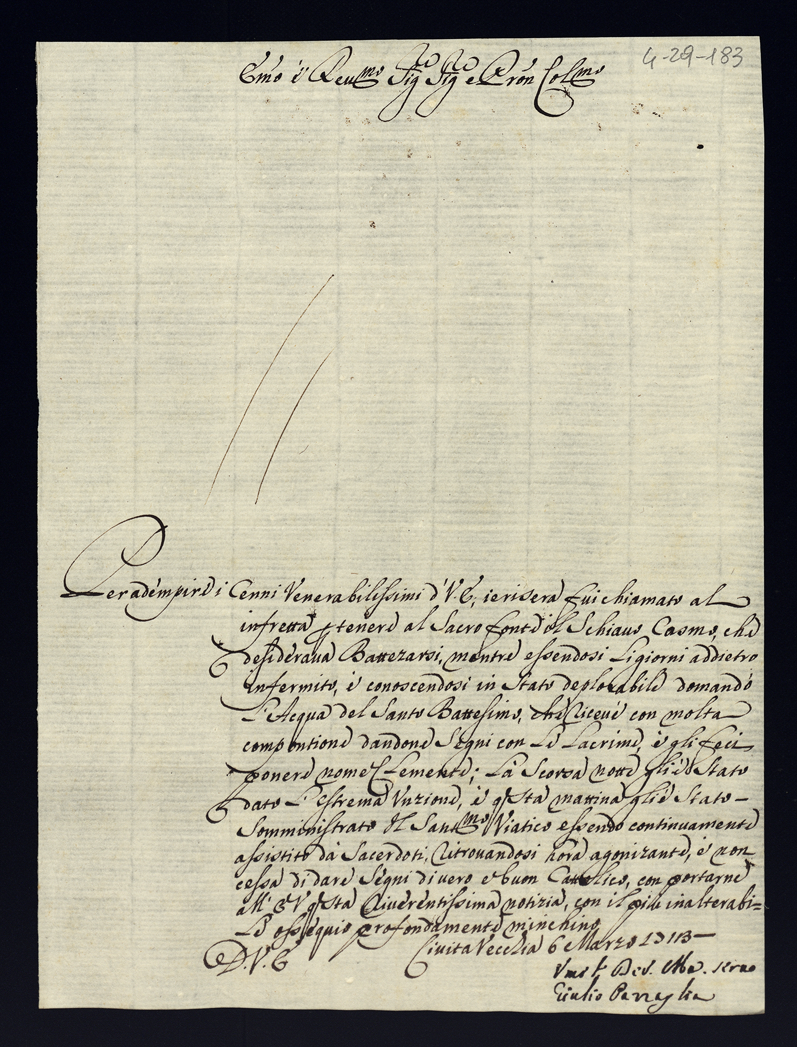 4-29-183
Emo è Reumo Sig Sig e Pron Colmo
Per adempire i Cenni Venerabilissimi d'V.E, ierisera fui chiamato al
infretta p tenere al Sacro fonte il Schiauo Casmo, che
desiderava Battezarsi, mentre essendosi li giorni addietro
infermito, è conoscendosi in stato deplorabile domandò
l'Acqua del Santo Battesimo, che riceué con molta
compontione dandone Segni con Le Lacrime, è gli feci
ponere nome Clemente; La Scorsa notte gli è Stato
dato l'estrema Vnzione, è qsta mattina gli è Stato
Somministrato il Santmo Viatico essendo continuamente
assistito dà Sacerdoti, ritrouandosi hora agonizante, è non
cessa di dare Segni di uero e buon Cattolico, con portarne
all' E V qsta riuerentissima notizia, con il più inalterabi=
le ossequio profondamente minchino
D. V. E Civita Vecchia 6 Marzo 1713
Vmo Deu. seruo
Giulio Pazzaglia